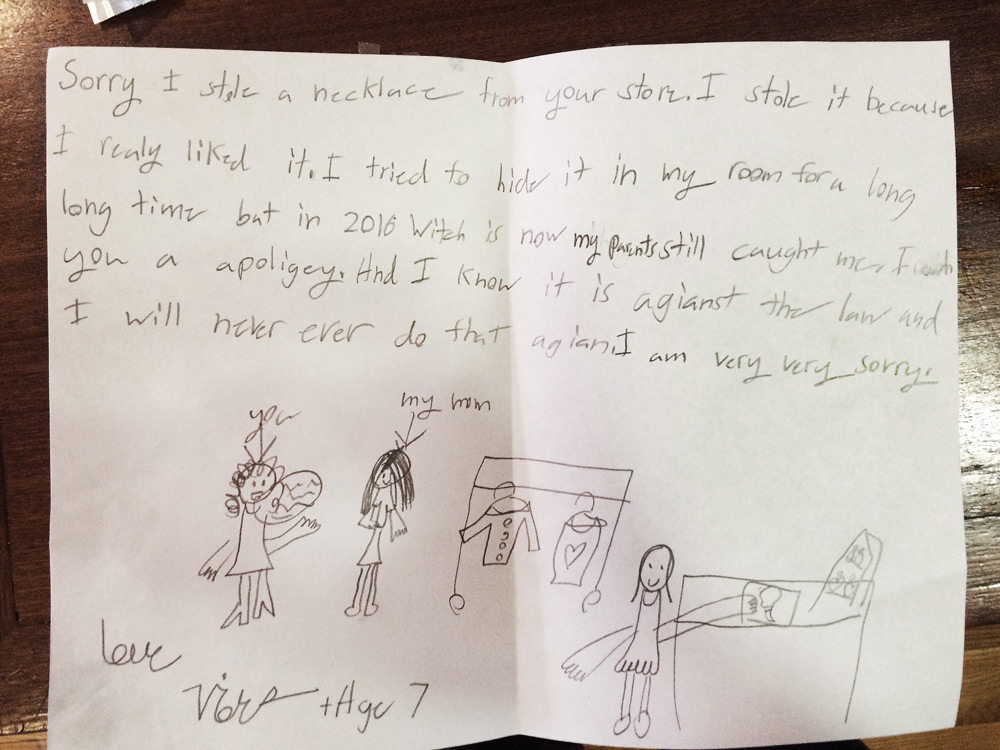 Sorry I stole a necklace from your store. I stole it because
I realy liked it. I tried to hide it in my room for a long
long time but in 2016 witch is now my parents still caught me. I
you a apoligey. And I know it is agianst the law and
I will never ever do that agian. I am very very sorry.
you
my mom
love
+Age 7